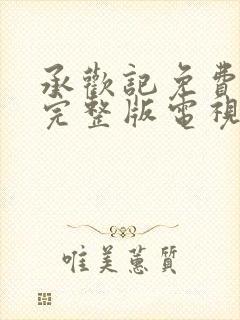 承歡記免費
完整版電視
唯美蕙質